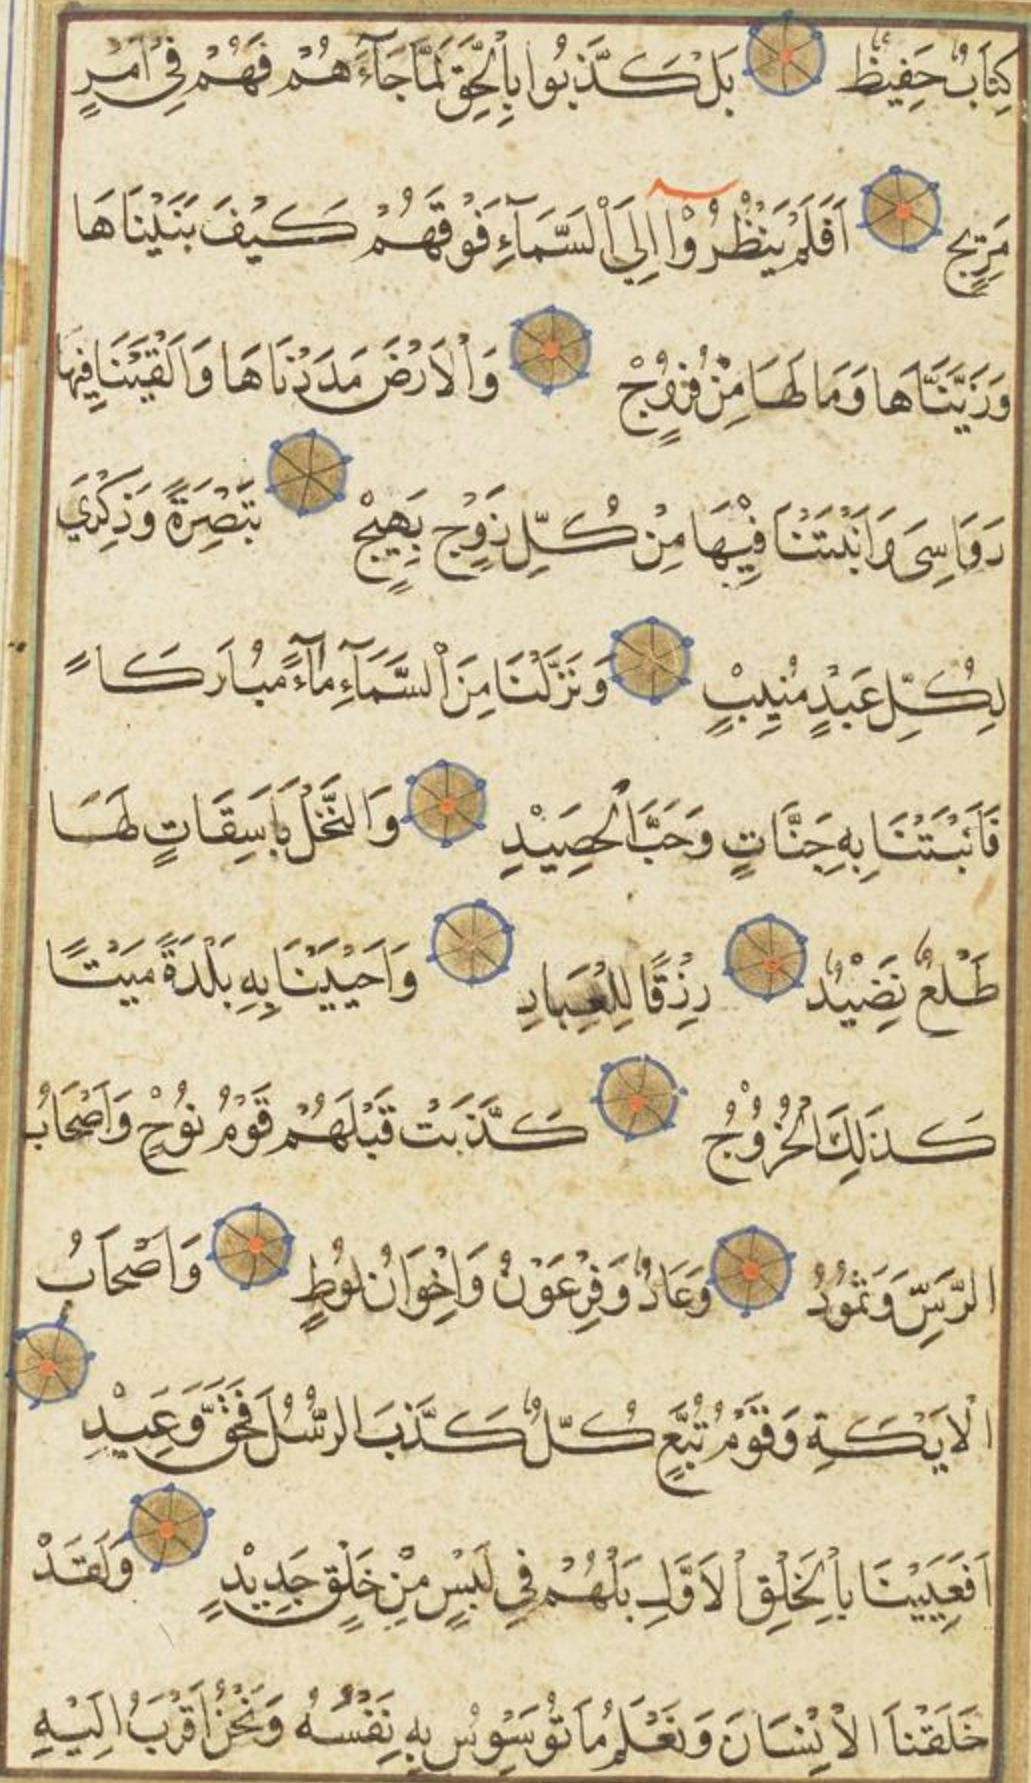 كِتَابٌ حَفِيظٌ بَلْ كَذَّبُوا بِالْحَقِّ لَمَّا جَآءَهُمْ فَهُمْ فِي اَمْرٍ
مَرِيجٍ اَفَلَمْ يَنْظُرُوْا اِلَي السَّمَآءِ فَوْقَهُمْ كَيْفَ بَنَيْنَاهَا
وَزَيَّنَّاهَا وَمَا لَهَا مِنْ فُرُوْجٍ وَالْاَرْضَ مَدَدْنَاهَا وَاَلْقَيْنَا فِيهَا
رَوَاسِىَ وَاَنْبَتْنَا فِيْهَا مِنْ كُلِّ زَوْجٍ بَهِيْجٍ تَبْصِرَةً وَذِكْرٰي
لِكُلِّ عَبْدٍ مُنِيْبٍ وَنَزَّلْنَا مِنَ السَّمَآءِ مَآءً مُبَارَكًا
فَاَنْبَتْنَا بِهِ جَنَّاتٍ وَحَبَّ الْحَصِيْدِ وَالنَّخْلَ بَاسِقَاتٍ لَهَا
طَلْعٌ نَضِيْدٌ رِزْقًا لِلْعِبَادِ وَاَحْيَيْنَا بِهِ بَلْدَةً مَيْتًا
كَذَلِكَ الْخُرُوْجُ كَذَّبَتْ قَبْلَهُمْ قَوْمُ نُوْحٍ وَاَصْحَابُ
الرَّسِّ وَثَمُوْدُ وَعَادٌ وَفِرْعَوْنُ وَاِخْوَانُ لُوْطٍ وَاَصْحَابُ
الْاَيْكَةِ وَقَوْمُ تُبَّعٍ كُلٌّ كَذَّبَ الرُّسُلَ فَحَقَّ وَعِيْدِ
اَفَعَيِيْنَا بِالْخَلْقِ الْاَوَّلِ بَلْ هُمْ فِي لَبْسٍ مِنْ خَلْقٍ جَدِيْدٍ وَلَقَدْ
خَلَقْنَا الْاِنْسَانَ وَنَعْلَمُ مَا تُوَسْوِسُ بِهِ نَفْسُهُ وَنَحْنُ اَقْرَبُ اِلَيْهِ